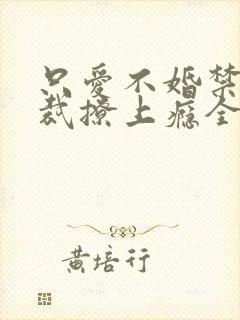 只爱不婚禁
裁撩上瘾全
黄培行